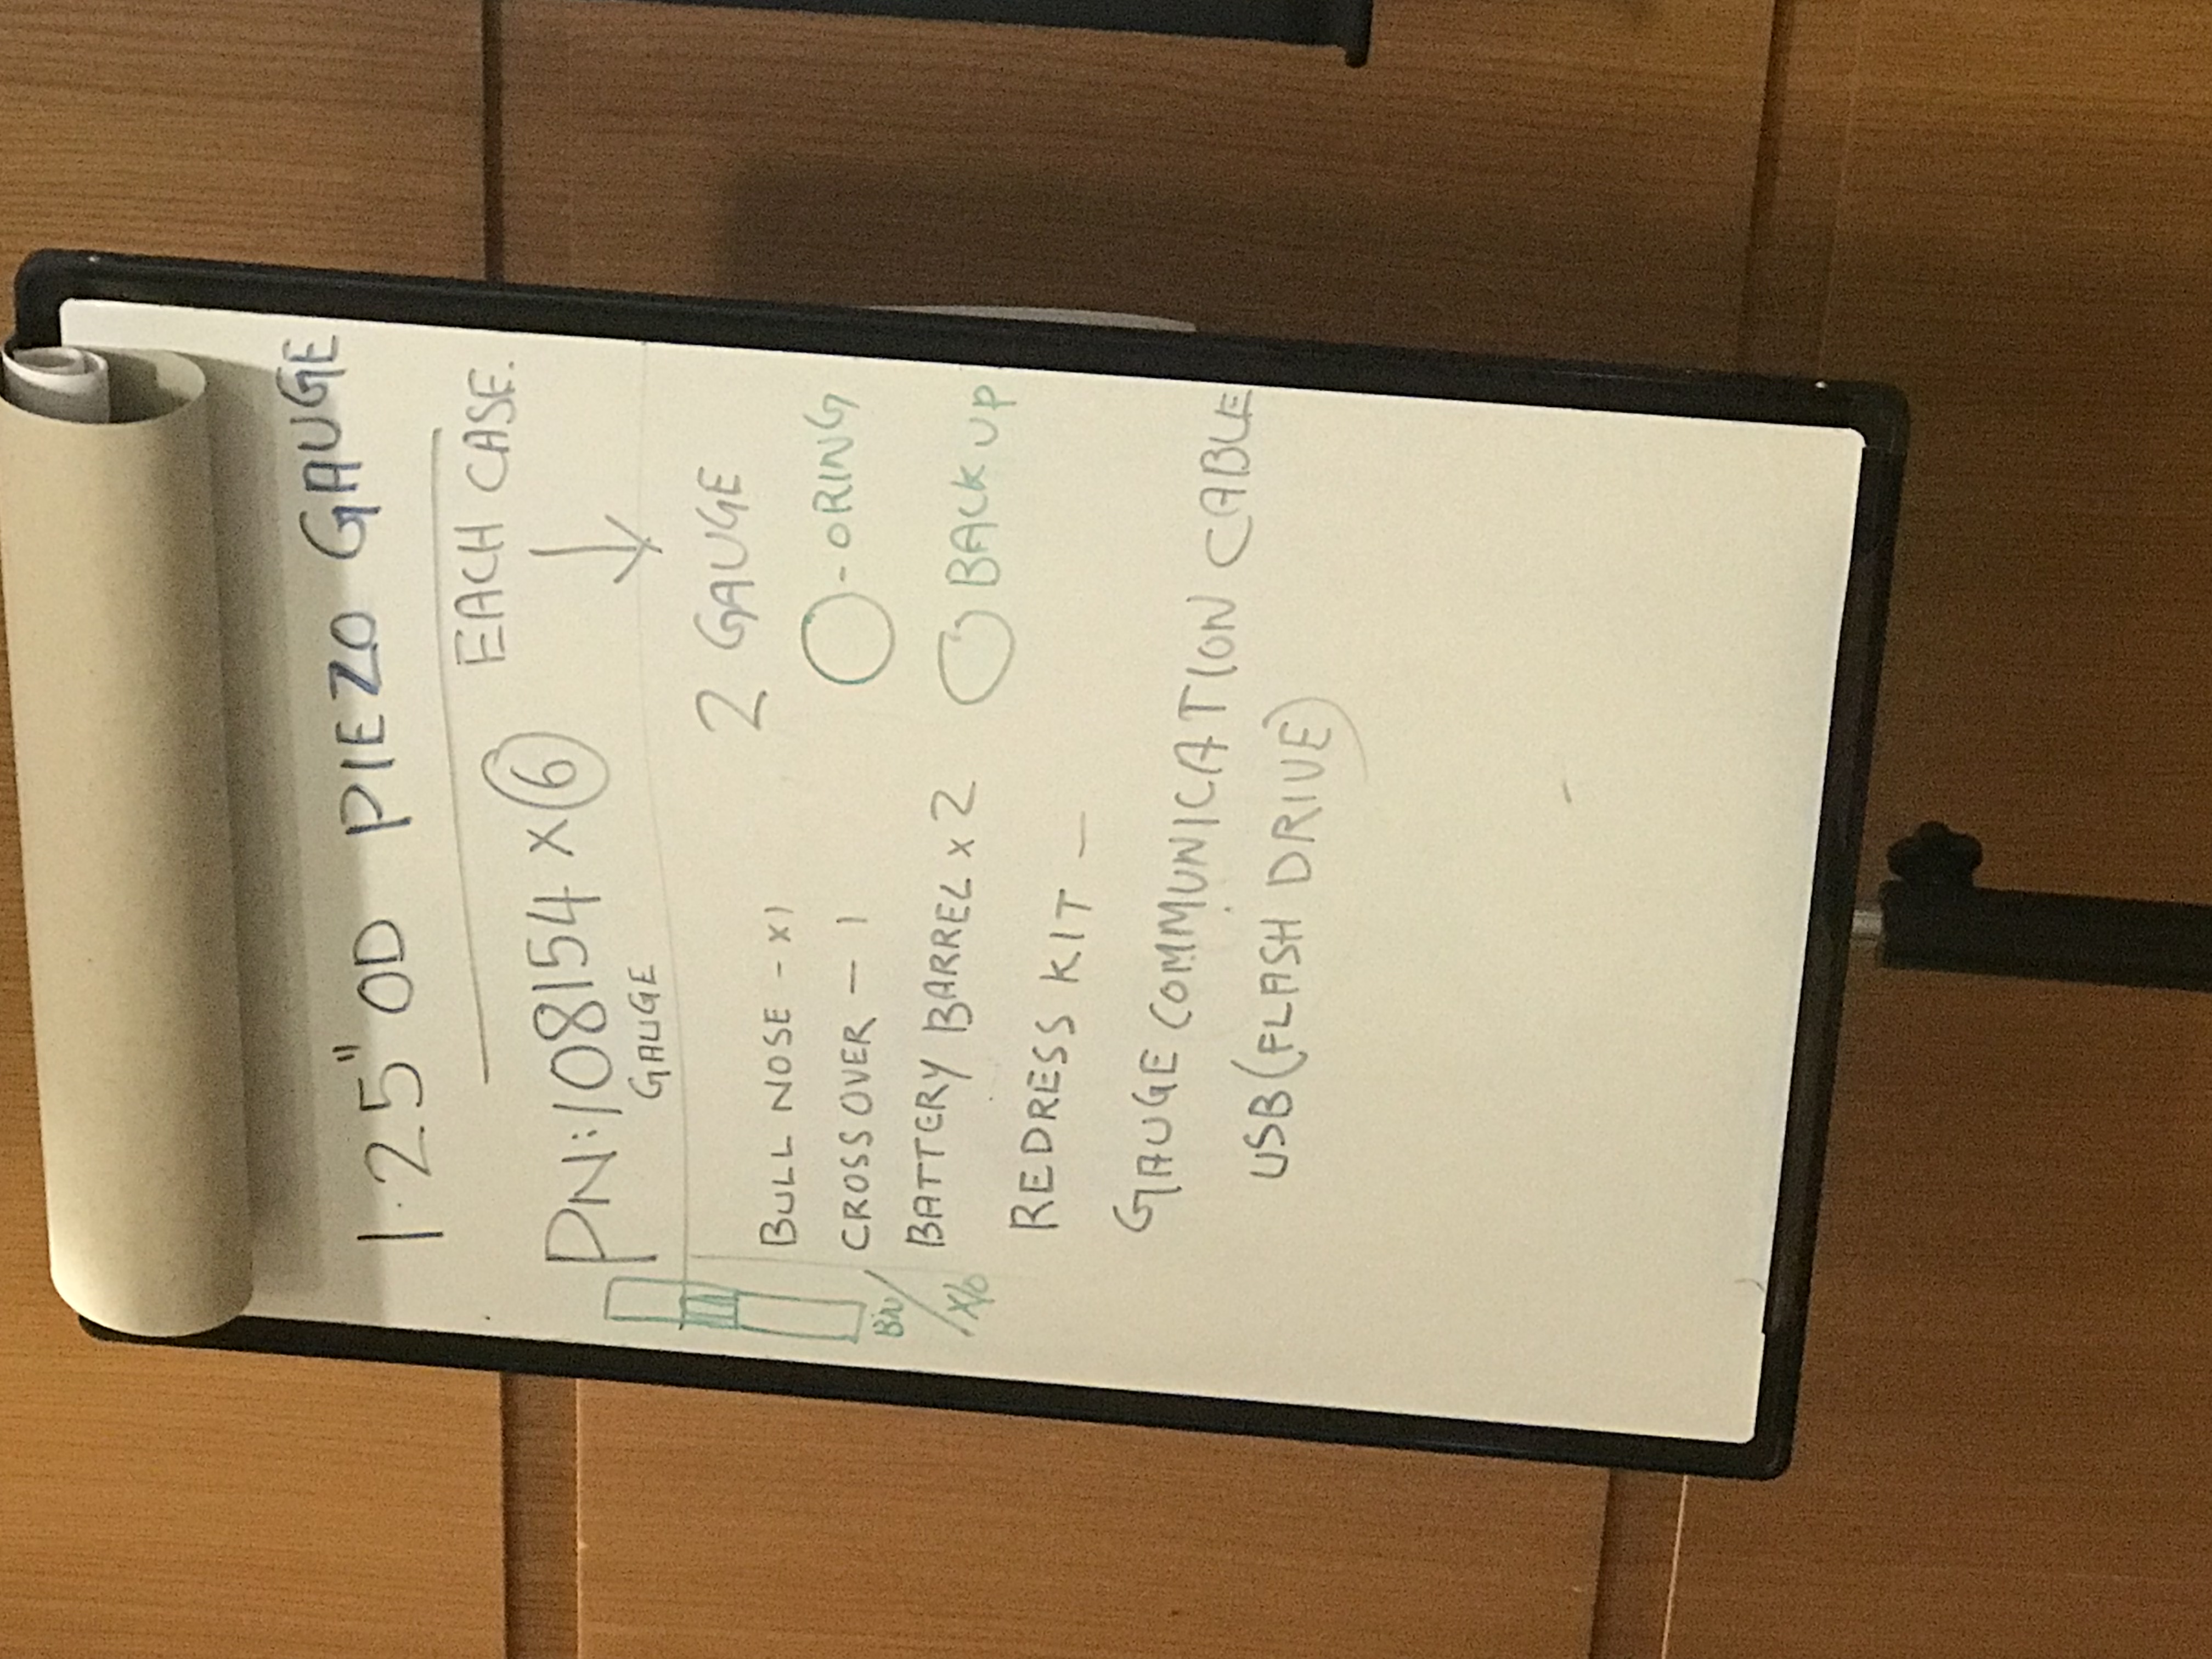 1.25" OD PIEZO GAUGE
PN:108154 x 6 EACH CASE.
GAUGE
2 GAUGE
BULL NOSE - x1
O-ORING
CROSS OVER - 1
BATTERY BARREL x 2
BACK UP
REDRESS KIT -
GAUGE COMMUNICATION CABLE
USB (FLASH DRIVE)
X/O